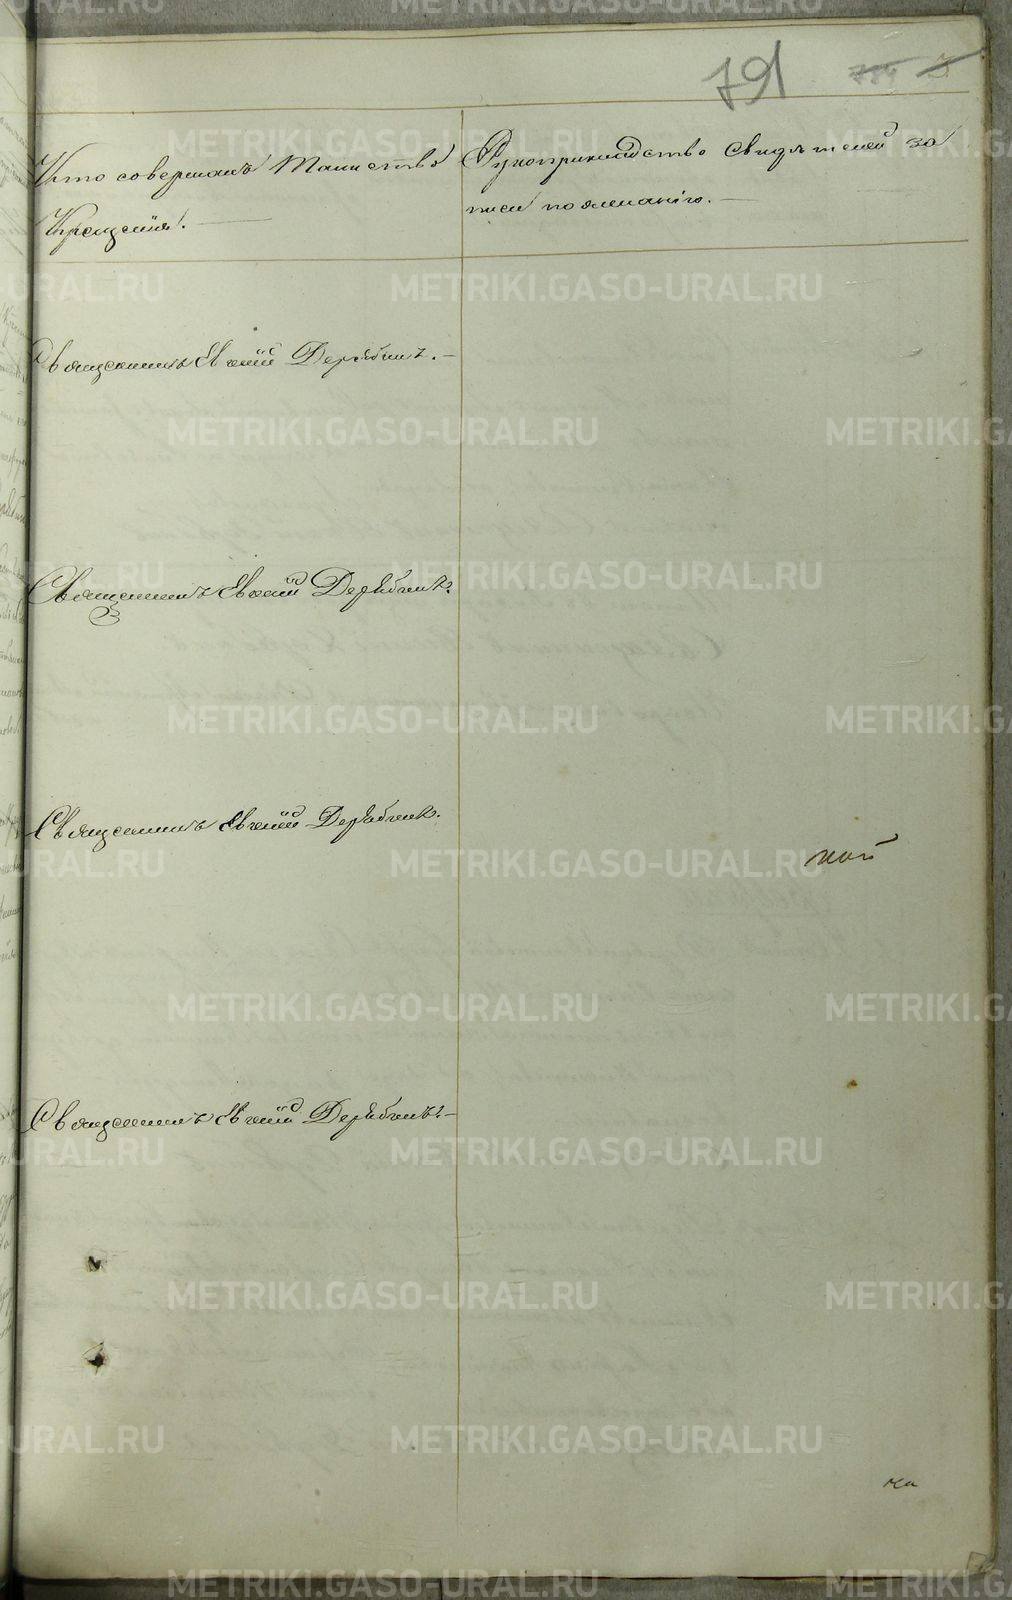 791
Кто совершалъ Таинство
Крещенія.
Рукоприкладство свидѣтелей за
писи по желанію.
Священникъ Евгеній Дерябинъ.
Священникъ Евгеній Дерябинъ.
Священникъ Евгеній Дерябинъ.
Священникъ Евгеній Дерябинъ.
METRIKI.GASO-URAL.RU